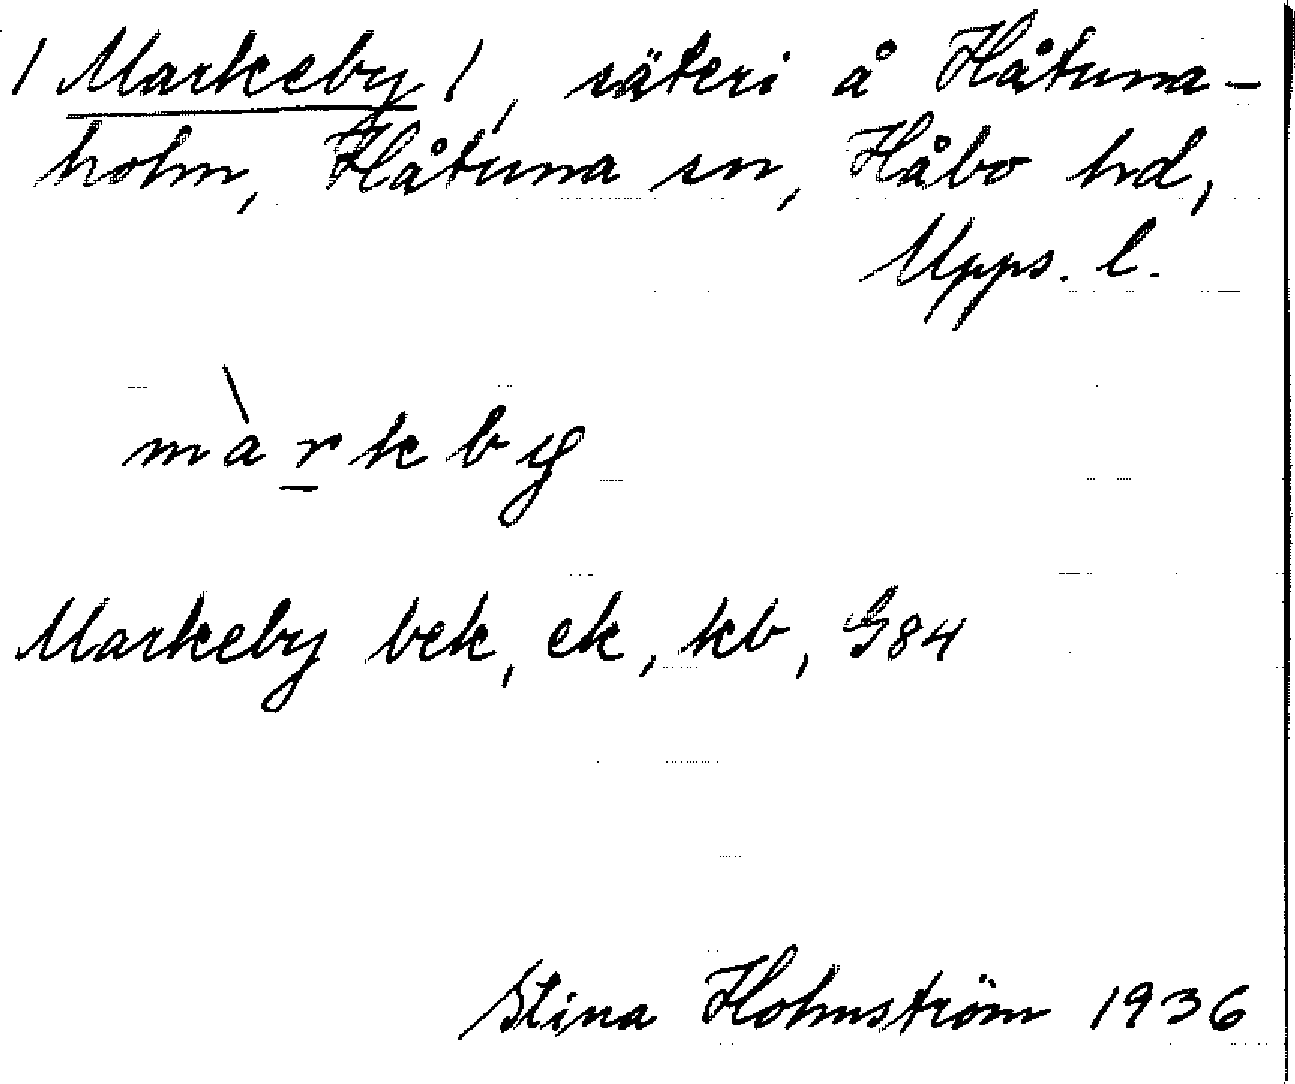 /Markeby/, säteri å Håtuna-
holm, Håtuna sn, Håbo hd,
Upps. l.
màrkby
Markeby bek, ek, kb, G84
Stina Holmström 1936